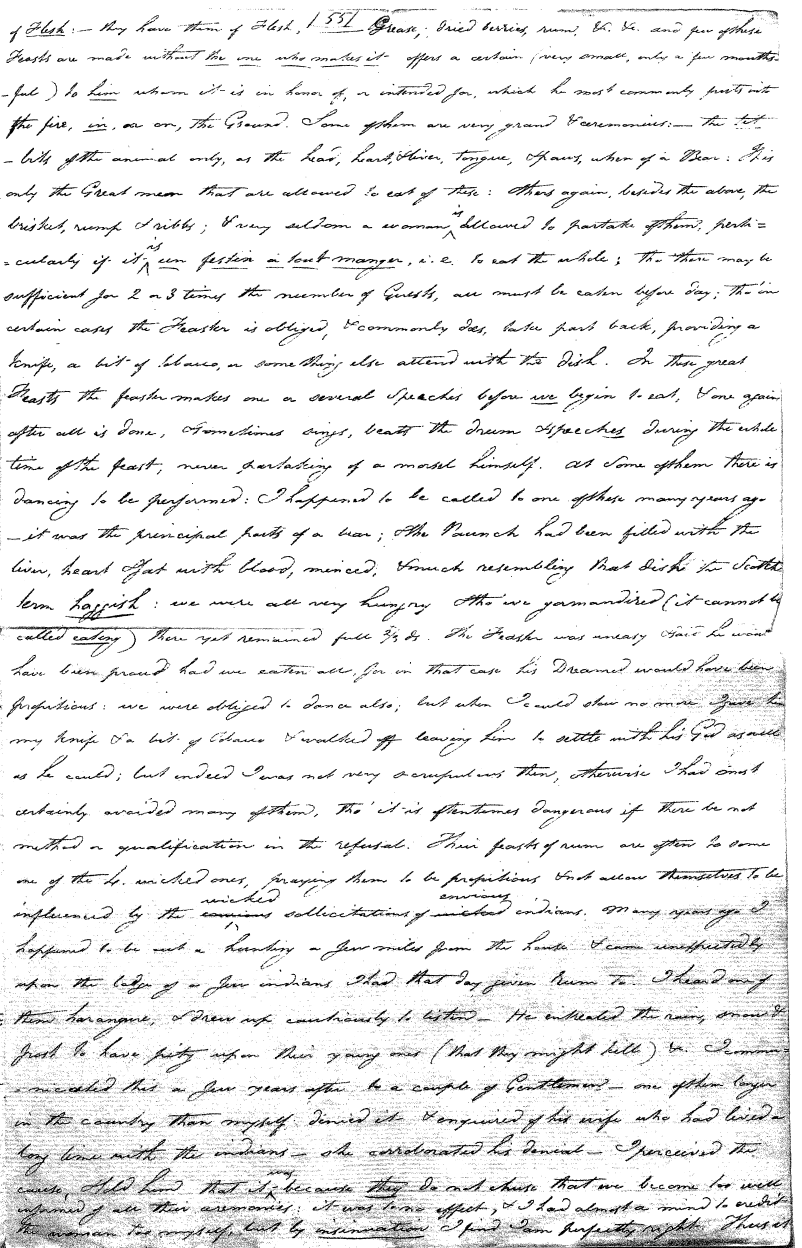 of Flesh:— they have them of Flesh, | 55 | Grease, dried berries, rum, &c. &c. and few of these
Feasts are made without the one who makes it offers a certain (very small, only a few mouths-
-ful) to him whom it is in honor of, or intended for, which he most commonly puts into
the fire, in, or on, the Ground. Some of them are very grand & ceremonius:— the tit-
-bits of the animal only, as the head, heart, & liver, tongue, & paws, when of a Bear: It is
only the Great men that are allowed to eat of these: others again, besides the above, the
brisket, rump & ribbs; & very seldom a woman is allowed to partake of them, perti=
=cularly if it is un festin à tout manger, i.e. to eat the whole; tho' there may be
sufficient for 2 or 3 times the number of Guests, all must be eaten before day; tho' in
certain cases the Feaster is obliged, & commonly does, take part back, providing a
knife, a bit of tobacco, or something else attend with the dish. In these great
Feasts the feaster makes one or several Speeches before we begin to eat, & one again
after all is done, & sometimes sings, beats the drum & speeches during the whole
time of the feast, never partaking of a morsel himself. At some of them there is
dancing to be performed: I happened to be called to one of these many years ago
— it was the principal parts of a bear; & the Paunch had been filled with the
liver, heart & fat with blood, minced, & much resembling that dish the Scotch
term haggish: we were all very hungry & tho' we gormandized (it cannot be
called eating) there yet remained full 2/3 ds. The Feaster was uneasy & said he wou'd
have been proud had we eaten all, for in that case his Dreamed would have been
propitious: we were obliged to dance also; but when I could stow no more I gave him
my knife & a bit of Tobacco & walked off leaving him to settle with his God as well
as he could; but indeed I was not very scrupulous then, otherwise I had most
certainly avoided many of them, tho' it is oftentimes dangerous if there be not
method or qualification in the refusal. Their feasts of rum are often to some
one of the 4. wicked ones, praying them to be propitious & not allow themselves to be
influenced by the envious wicked sollicitations of wicked envious indians. Many years ago I
happened to be out a hunting a few miles from the house & came unexpectedly
upon the lodge of a few indians I had that day given Rum to. I heard one of
them harangue, & drew up cautiously to listen— He entreated the rain, snow &
frost to have pity upon their young ones (that they might kill) &c. I commu=
=nicated this a few years after to a couple of Gentlemen— one of them longer
in the country than myself denied it & enquired of his wife who had lived a
long time with the indians— she corroborated his denial— I perceived the
cause, & told him that it was because they do not chuse that we become too well
informed of all their ceremonies: it was to no effect, & I had almost a mind to credit
the woman too myself, but by insinuation I find I am perfectly right. Thus it